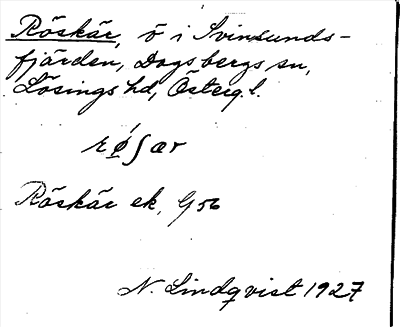 Röskär, ö i Svinsunds-
fjärden, Dagsbergs sn,
Lösings hd, Österg. l.
rǿʃær
Röskär ek, G 56
N. Lindqvist 1927